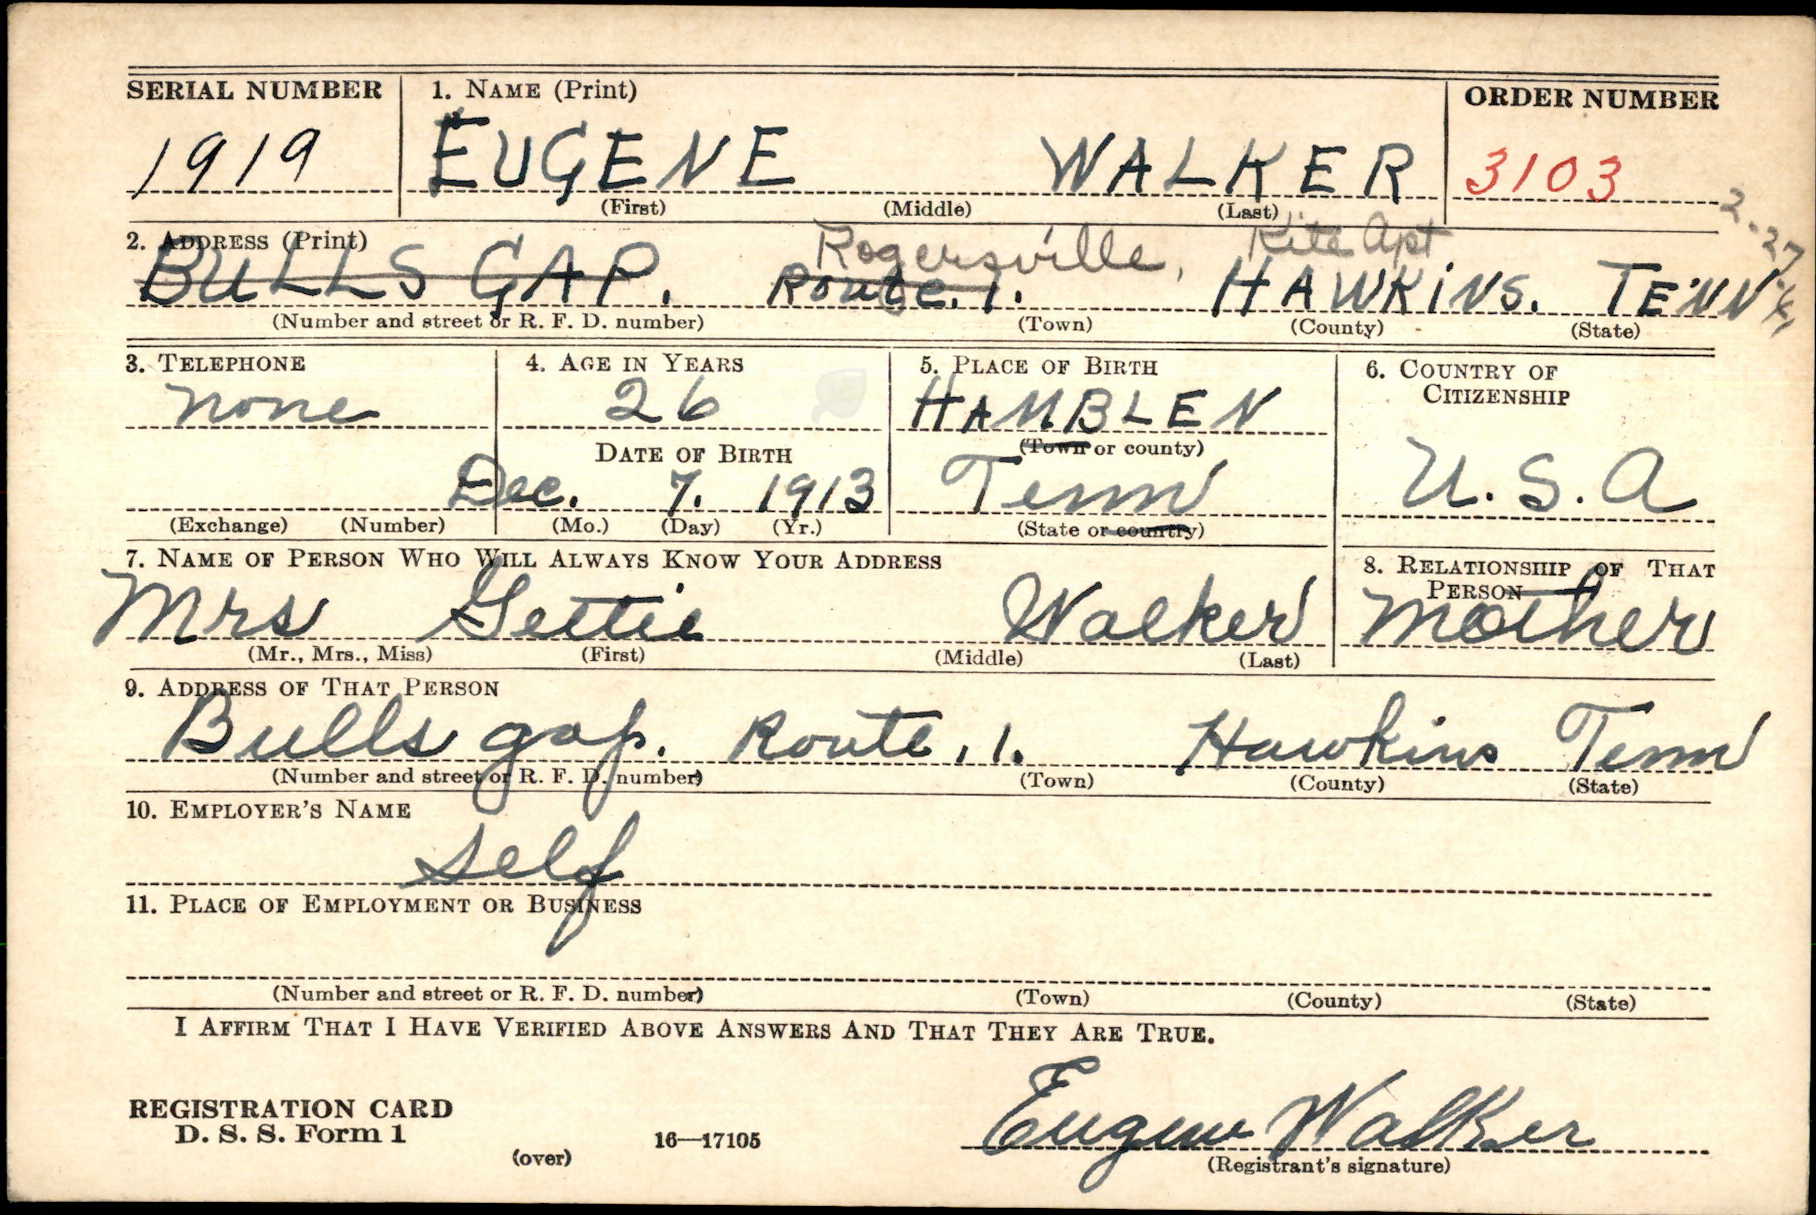 SERIAL NUMBER 1. NAME (Print) ORDER NUMBER
1919 EUGENE WALKER 3103
(First) (Middle) (Last)
2. ADDRESS (Print) Rogersville, Kite Apt 2-27-41
BULLS GAP. Route. 1. HAWKINS. TENN
(Number and street or R. F. D. number) (Town) (County) (State)
3. TELEPHONE 4. AGE IN YEARS 5. PLACE OF BIRTH 6. COUNTRY OF
CITIZENSHIP
none 26 HAMBLEN
DATE OF BIRTH (Town or county)
Dec. 7. 1913 Tenn U.S.A
(Exchange) (Number) (Mo.) (Day) (Yr.) (State or country)
7. NAME OF PERSON WHO WILL ALWAYS KNOW YOUR ADDRESS 8. RELATIONSHIP OF THAT
PERSON
Mrs Gettie Walker Mother
(Mr., Mrs., Miss) (First) (Middle) (Last)
9. ADDRESS OF THAT PERSON
Bulls gap. Route. 1. Hawkins Tenn
(Number and street or R. F. D. number) (Town) (County) (State)
10. EMPLOYER'S NAME
Self
11. PLACE OF EMPLOYMENT OR BUSINESS
(Number and street or R. F. D. number) (Town) (County) (State)
I AFFIRM THAT I HAVE VERIFIED ABOVE ANSWERS AND THAT THEY ARE TRUE.
REGISTRATION CARD
D. S. S. Form 1
(over) 16—17105 Eugene Walker
(Registrant's signature)